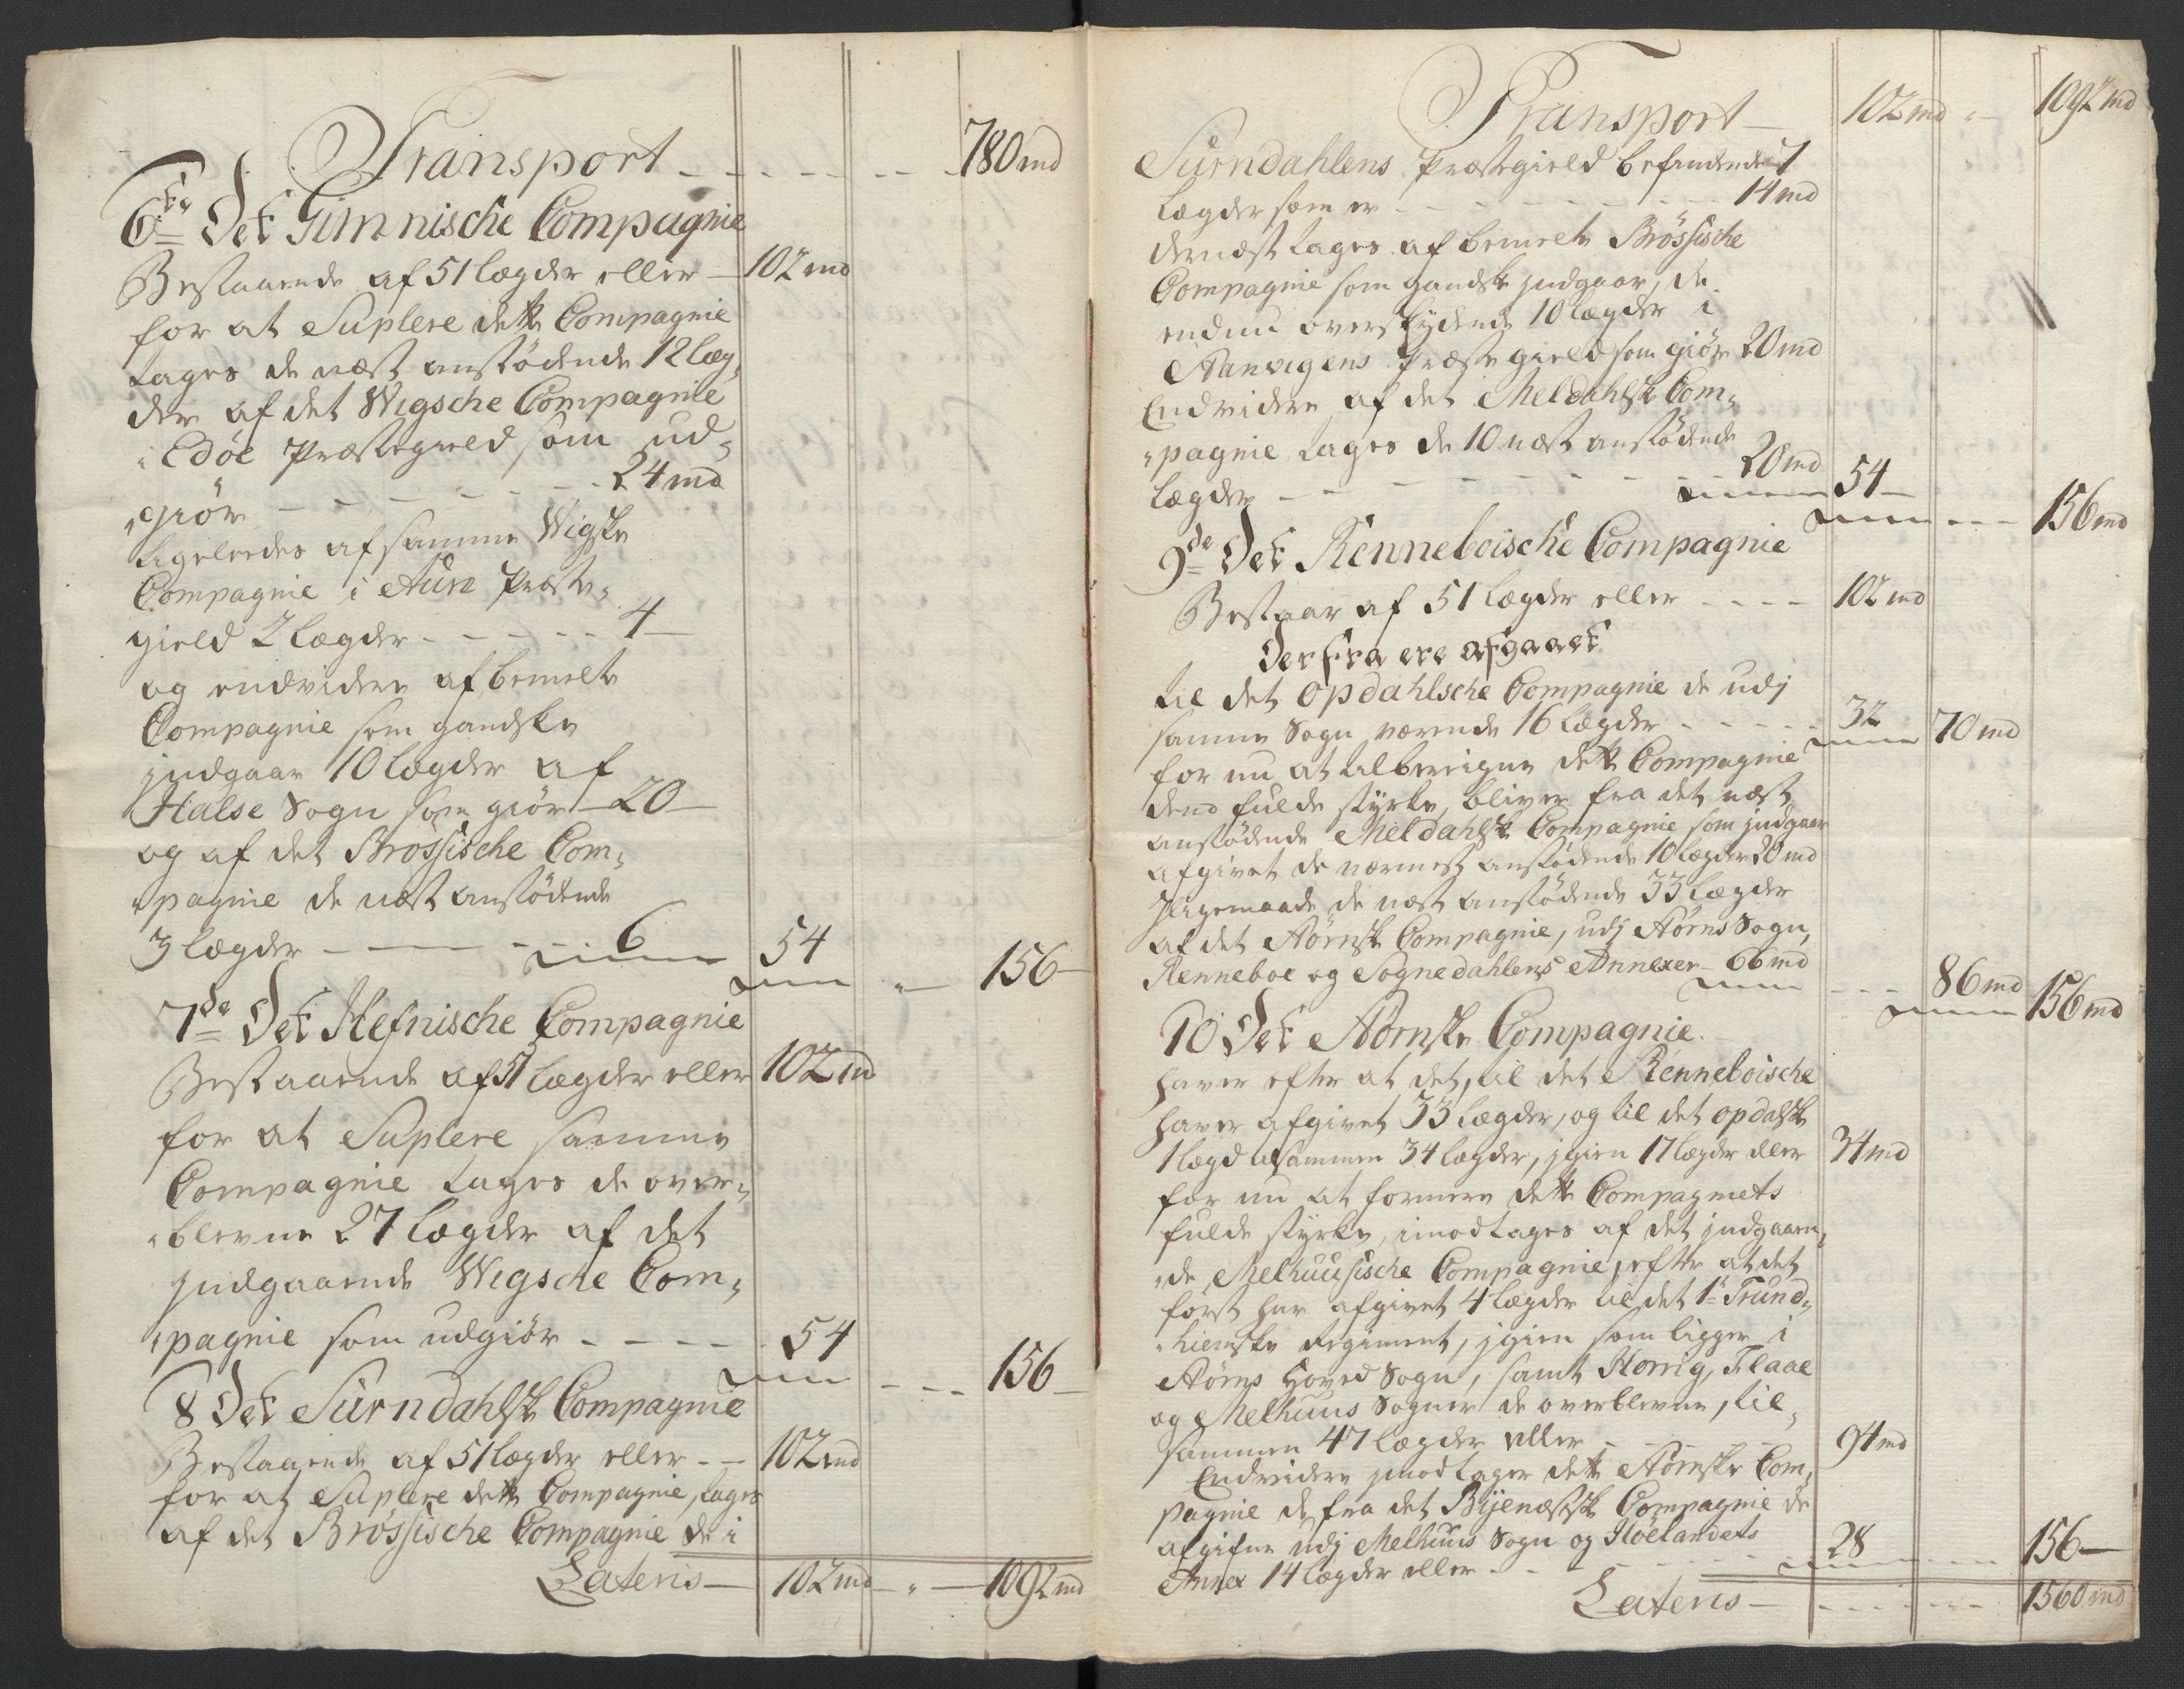 Transport - - - - - - - 780 md
6te Det Gimnische Compagnie
Bestaaende af 51 lægder eller - 102 md
for at Suplere dette Compagnie
tages de næst anstödende 12 læg„
der af det Wigsche Compagnie
i Edöe Præstegield som ud„
„giör - - - - - - 24 md
ligeleedes af samme Wigske
Compagnie i Aure Præste„
gield 2 lægder - - - - - 4 -
og endvidere af bemelte
Compagnie som gandske
jndgaar 10 lægder af
Halse Sogn som giör - 20 -
og af det Brössische Com„
„pagnie de næst anstödende
3 lægder - - - - 6 54 „ - 156 -
7de Det Hefnische Compagnie
Bestaaende af 51 lægder eller 102 md
for at Suplere samme
Compagnie tages de over„
„blevne 27 lægder af det
jndgaaende Wigsche Com„
„pagnie som udgiör - - - - 54 - - - 156 -
8 Det Surndahlske Compagnie
Bestaaende af 51 lægder eller - - 102 md
for at Suplere dette Compagnie, tages
af det Brössische Compagnie de i
Lateris - 102 md - „ - 1092 md
Transport - 102 md „ - 1092 md
Surndahlens Præstegield befindende 7
lægder som er - - - - - - - 14 md
dernæst tages af bemelte Brössische
Compagnie som gandske jndgaar, de
endnu overskydende 10 lægder i
Stanvigens Præstegield som giör 20 md
Endvidere af det Meldahlske Com„
„pagnie tages de 10 næst anstödende
lægder - - - - - - - - 20 md 54 - - - - 156 md
9de Det Renneboische Compagnie
Bestaar af 51 lægder eller - - - - 102 md
Derfra ere afgaaet
til det Opdahlsche Compagnie de udj
samme Sogn værende 16 lægder - - - - - 32 70 md
for nu at tilbereigne dette Compagnie
dend fulde styrke, bliver fra det næst
anstödende Meldahlske Compagnie som jndgaar
afgivet de nærmest anstödende 10 lægder 20 md
Jligemaade de næst anstödende 33 lægder
af det Störenske Compagnie, udj Störens Sogn,
Renneboe og Sognedahlens Annexer - 66 md - - - 86 md 156 md
10 Det Störnske Compagnie.
haver efter at det, til det Renneboische
haver afgivet 33 lægder, og til det opdalske
1 lægd tilsammen 34 lægder, jgien 17 lægder eller 34 md
for nu at formere dette Compagniets
fulde styrke, imodtages af det jndgaaen„
„de Melhuusische Compagnie, efter at det
först har afgivet 4 lægder til det 1te Trund„
„hiemske Regiment, jgien som ligger i
Störens Hoved Sogn, samt Horrig, Flaae
og Melhuus Sogner de overblevne, til„
sammen 47 lægder eller - - - - 94 md
Endvidere jmodtager dette Störnske Com„
pagnie de fra det Byenæsiske Compagnie de
afgifne udj Melhuus Sogn og Höelandets
Annex 14 lægder eller - - - - - - 28 - - - 156 -
Lateris - - - - - - - 1560 md